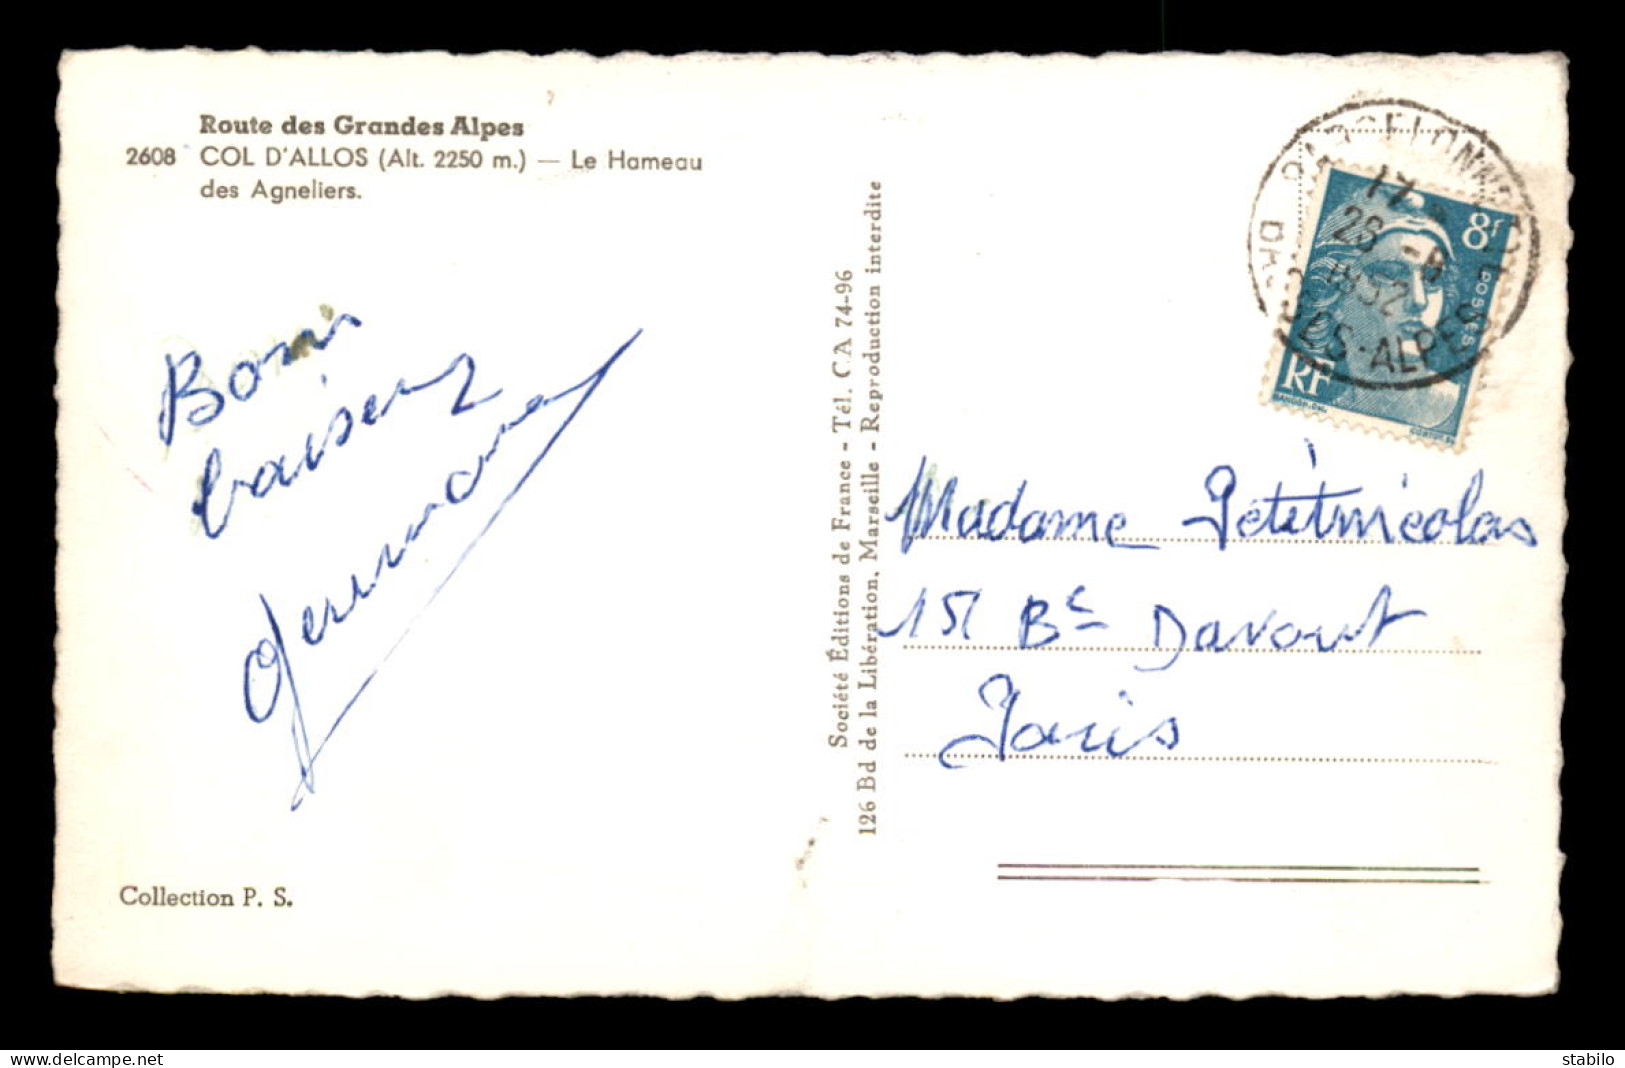 Route des Grandes Alpes
2608 COL D'ALLOS (Alt. 2250 m.) — Le Hameau
des Agneliers.
Bons
baisers
Germaine
Collection P. S.
Société Éditions de France - Tél. CA 74-96
126 Bd de la Libération, Marseille - Reproduction interdite
BARCELONNETTE
17
26 -8
1952
BASSES-ALPES
8f
POSTES
RF
GANDON DEL
CORTOT SC
Madame Petitnicolas
151 Bd Davout
Paris
www.delcampe.net
stabilo